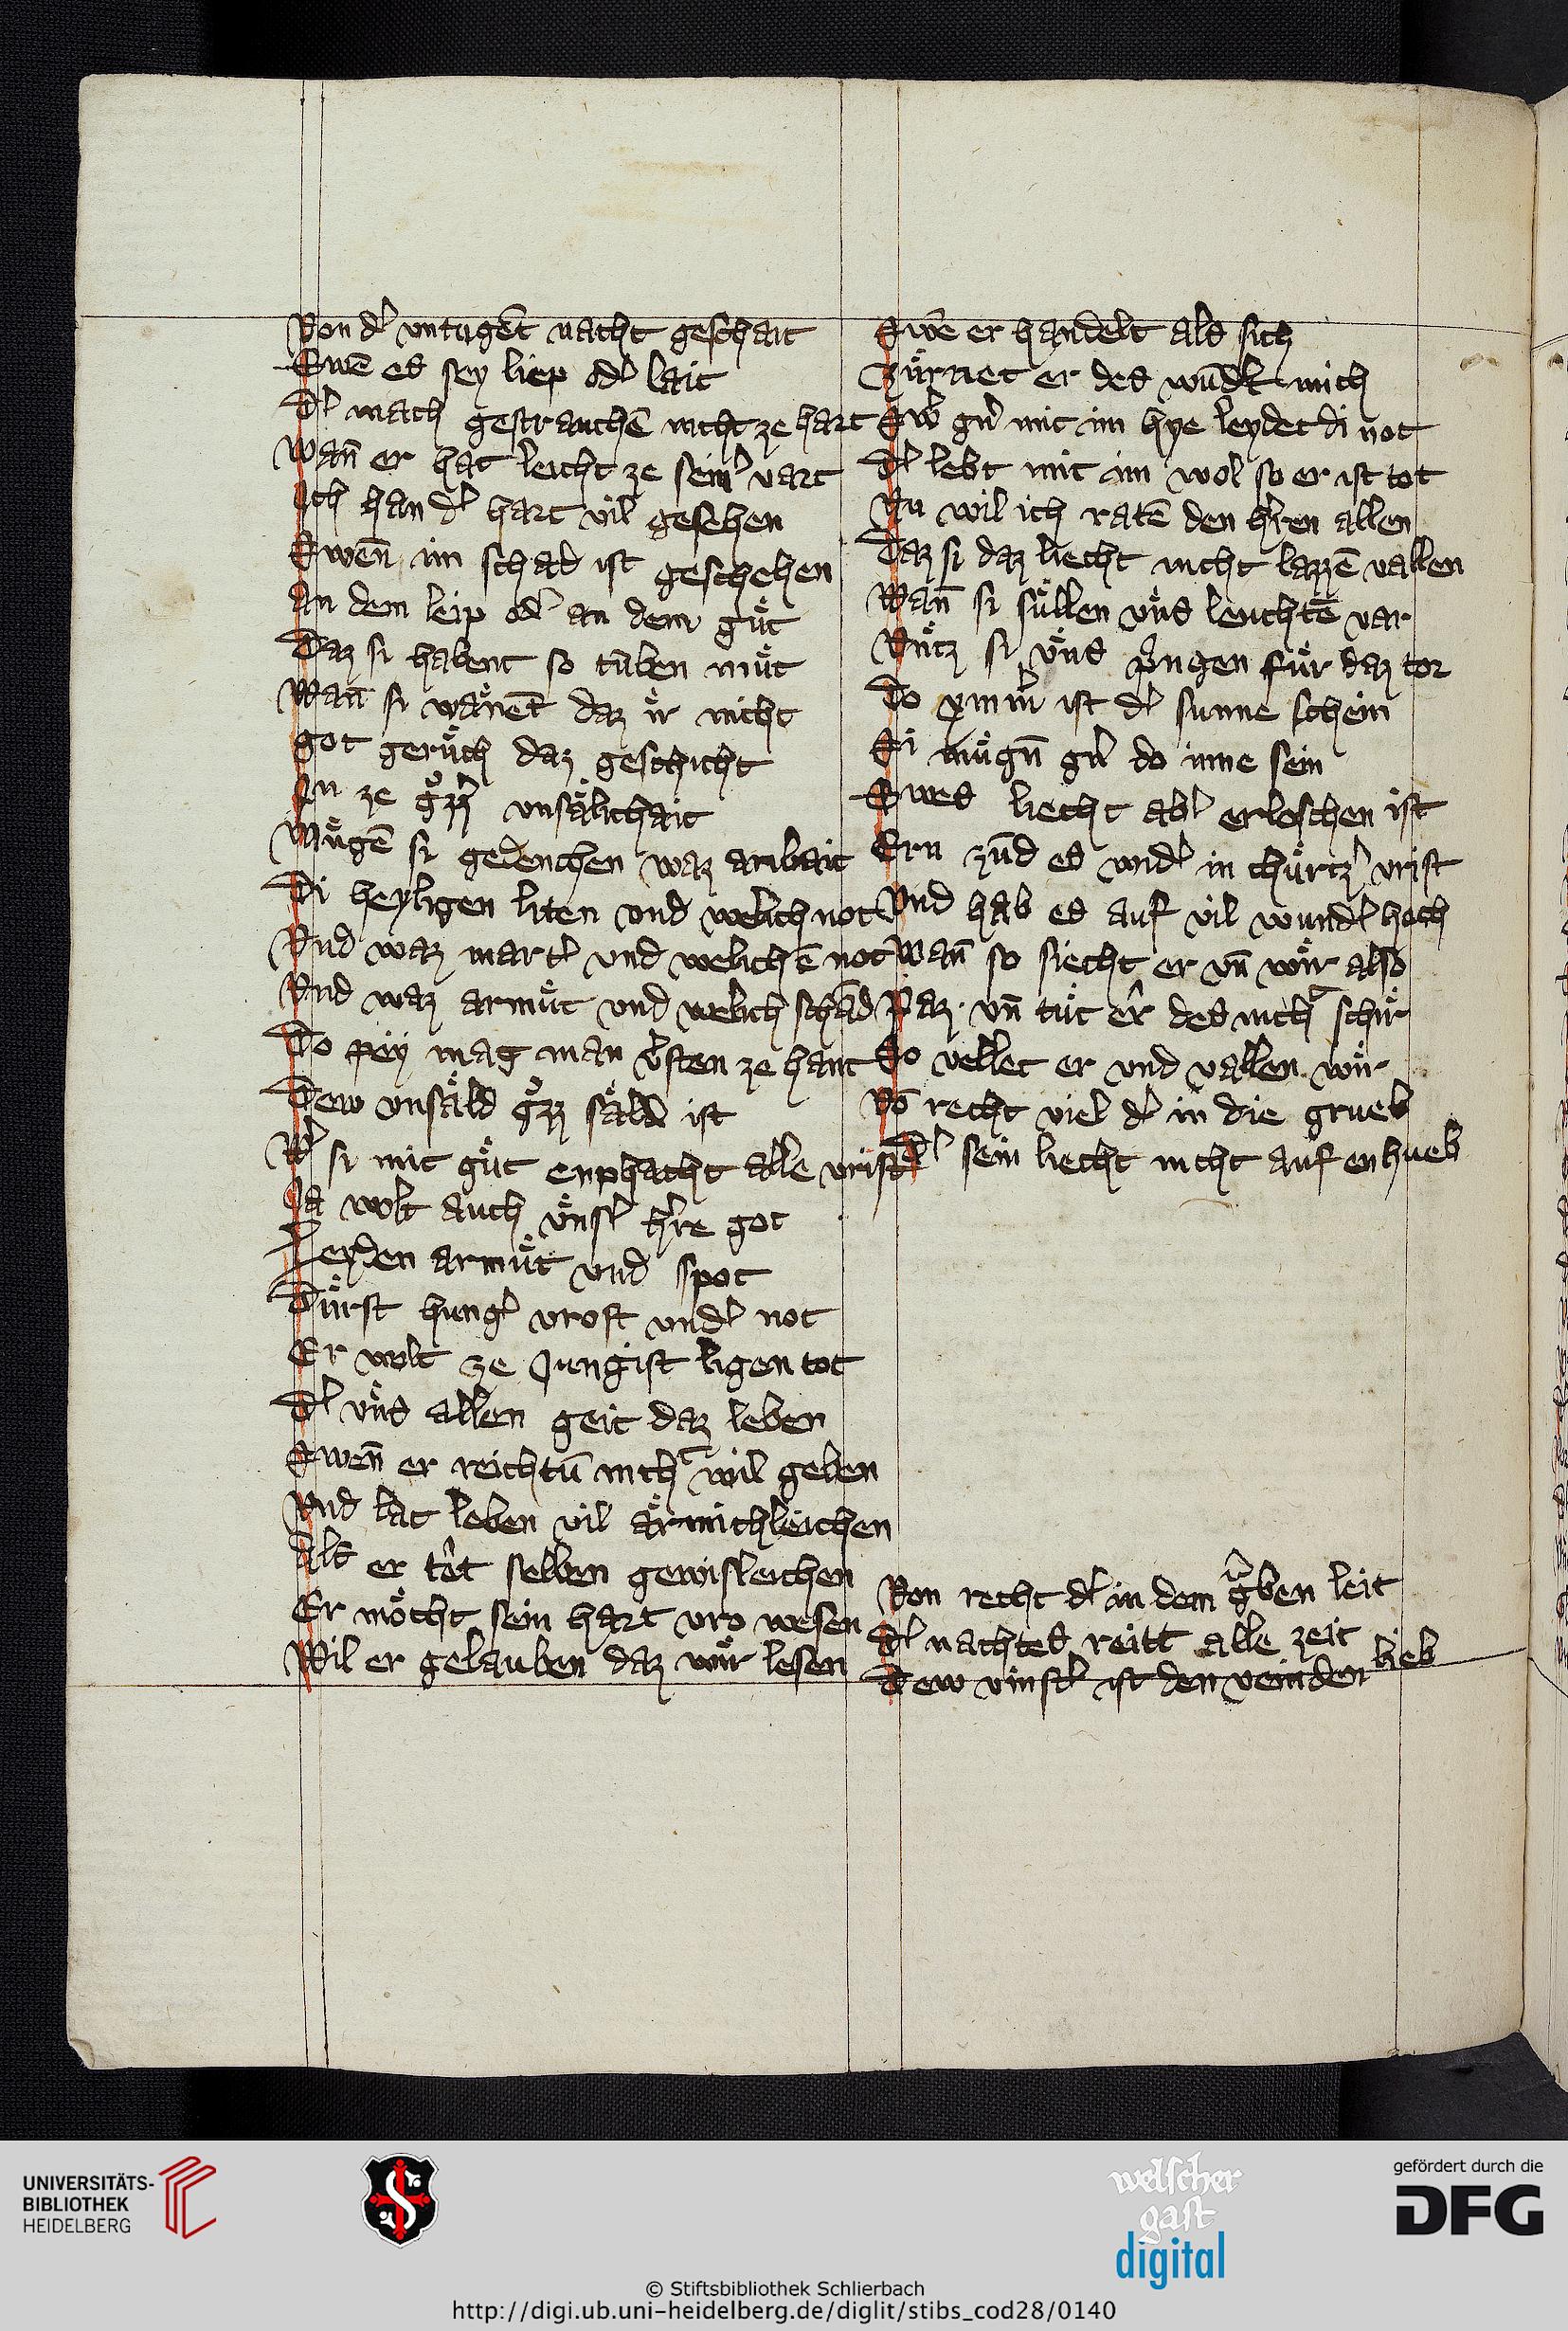 Von dˀ vntugēt nacht geschait
Swē es sey liep odˀ lait
Dˀ mach gestrauchē nicht ze hart
Wan̄ er hat leicht ze seinˀ vart
Ich han dˀ hart vil gesehen
Swen̄ im schad ist geschehen
An dem leip odˀ an dem guͤt
Daz si habent so tuͤben muͤt
Wan̄ si waͤnēt daz iͤr nicht
got geruͤch daz geschicht
In ze gͦzzˀ vnsaͤlichait
Muͤgē si gedenchen waz aribait
Di heyligen liten vnd welich not
Vnd waz martˀ vnd welichē not
Vnd waz armuͤt vnd welich schād
Do pey mag man vˀsten ze hant
Dew vnsaͤld gͦzz saͤld ist
Wˀ si mit guͤt enphacht alle vrist
Ja wolt auch vͤnsˀ hˀre got
Leyden armuͤt vnd spot
Duͤrst hungˀ vrost vndˀ not
Er wolt ze Jungist ligen tot
Dˀ vͤns allen geit daz leben
Swen̄ er reichtū nichᵗ wil geben
Vnd lat leben vil aͤrmichleichen
Als er tet selben gewisleichen
Er moͤcht sein hart vro wesen
Wil er gelauben daz wiͤr lesen
Swē er handelt als sich
Zuͤrnet er des wūdˀt mich
Swˀ gˀn mit im hye leydet di not
Dˀ lebt mit im wol so er ist tot
Nu wil ich ratē den hˀren allen
Daz si daz liecht nicht lazzē vallen
Wan̄ si suͤllen vͤns leuchtē vor
Vntz si vͤns pⁱngen fuͤr daz tor
Do ymmˀ ist dˀ sunne schein
Si muͤgn̄ gˀn do inne sein
Swes liecht abˀ erloschen ist
Ern zūd es widˀ in chuͤrtzˀ vrist
Vnd hab es auf vil wundˀ hoch
Wan̄ so siecht er vn̄ wiͤr also
Paz vn̄ tuͤt er des nichᵗ schiͤr
So vellet er vnd vallen wiͤr
Vō recht viel dˀ in die grueb
Dˀ sein liecht nicht auf enhueb
Von recht dˀ in dem gᵃben leit
Dˀ nachtes reitt alle zeit
Dew vinstˀ ist den veinden lieb
UNIVERSITÄTS-
BIBLIOTHEK
HEIDELBERG
welscher
gast
digital
gefördert durch die
DFG
© Stiftsbibliothek Schlierbach
http://digi.ub.uni-heidelberg.de/diglit/stibs_cod28/0140